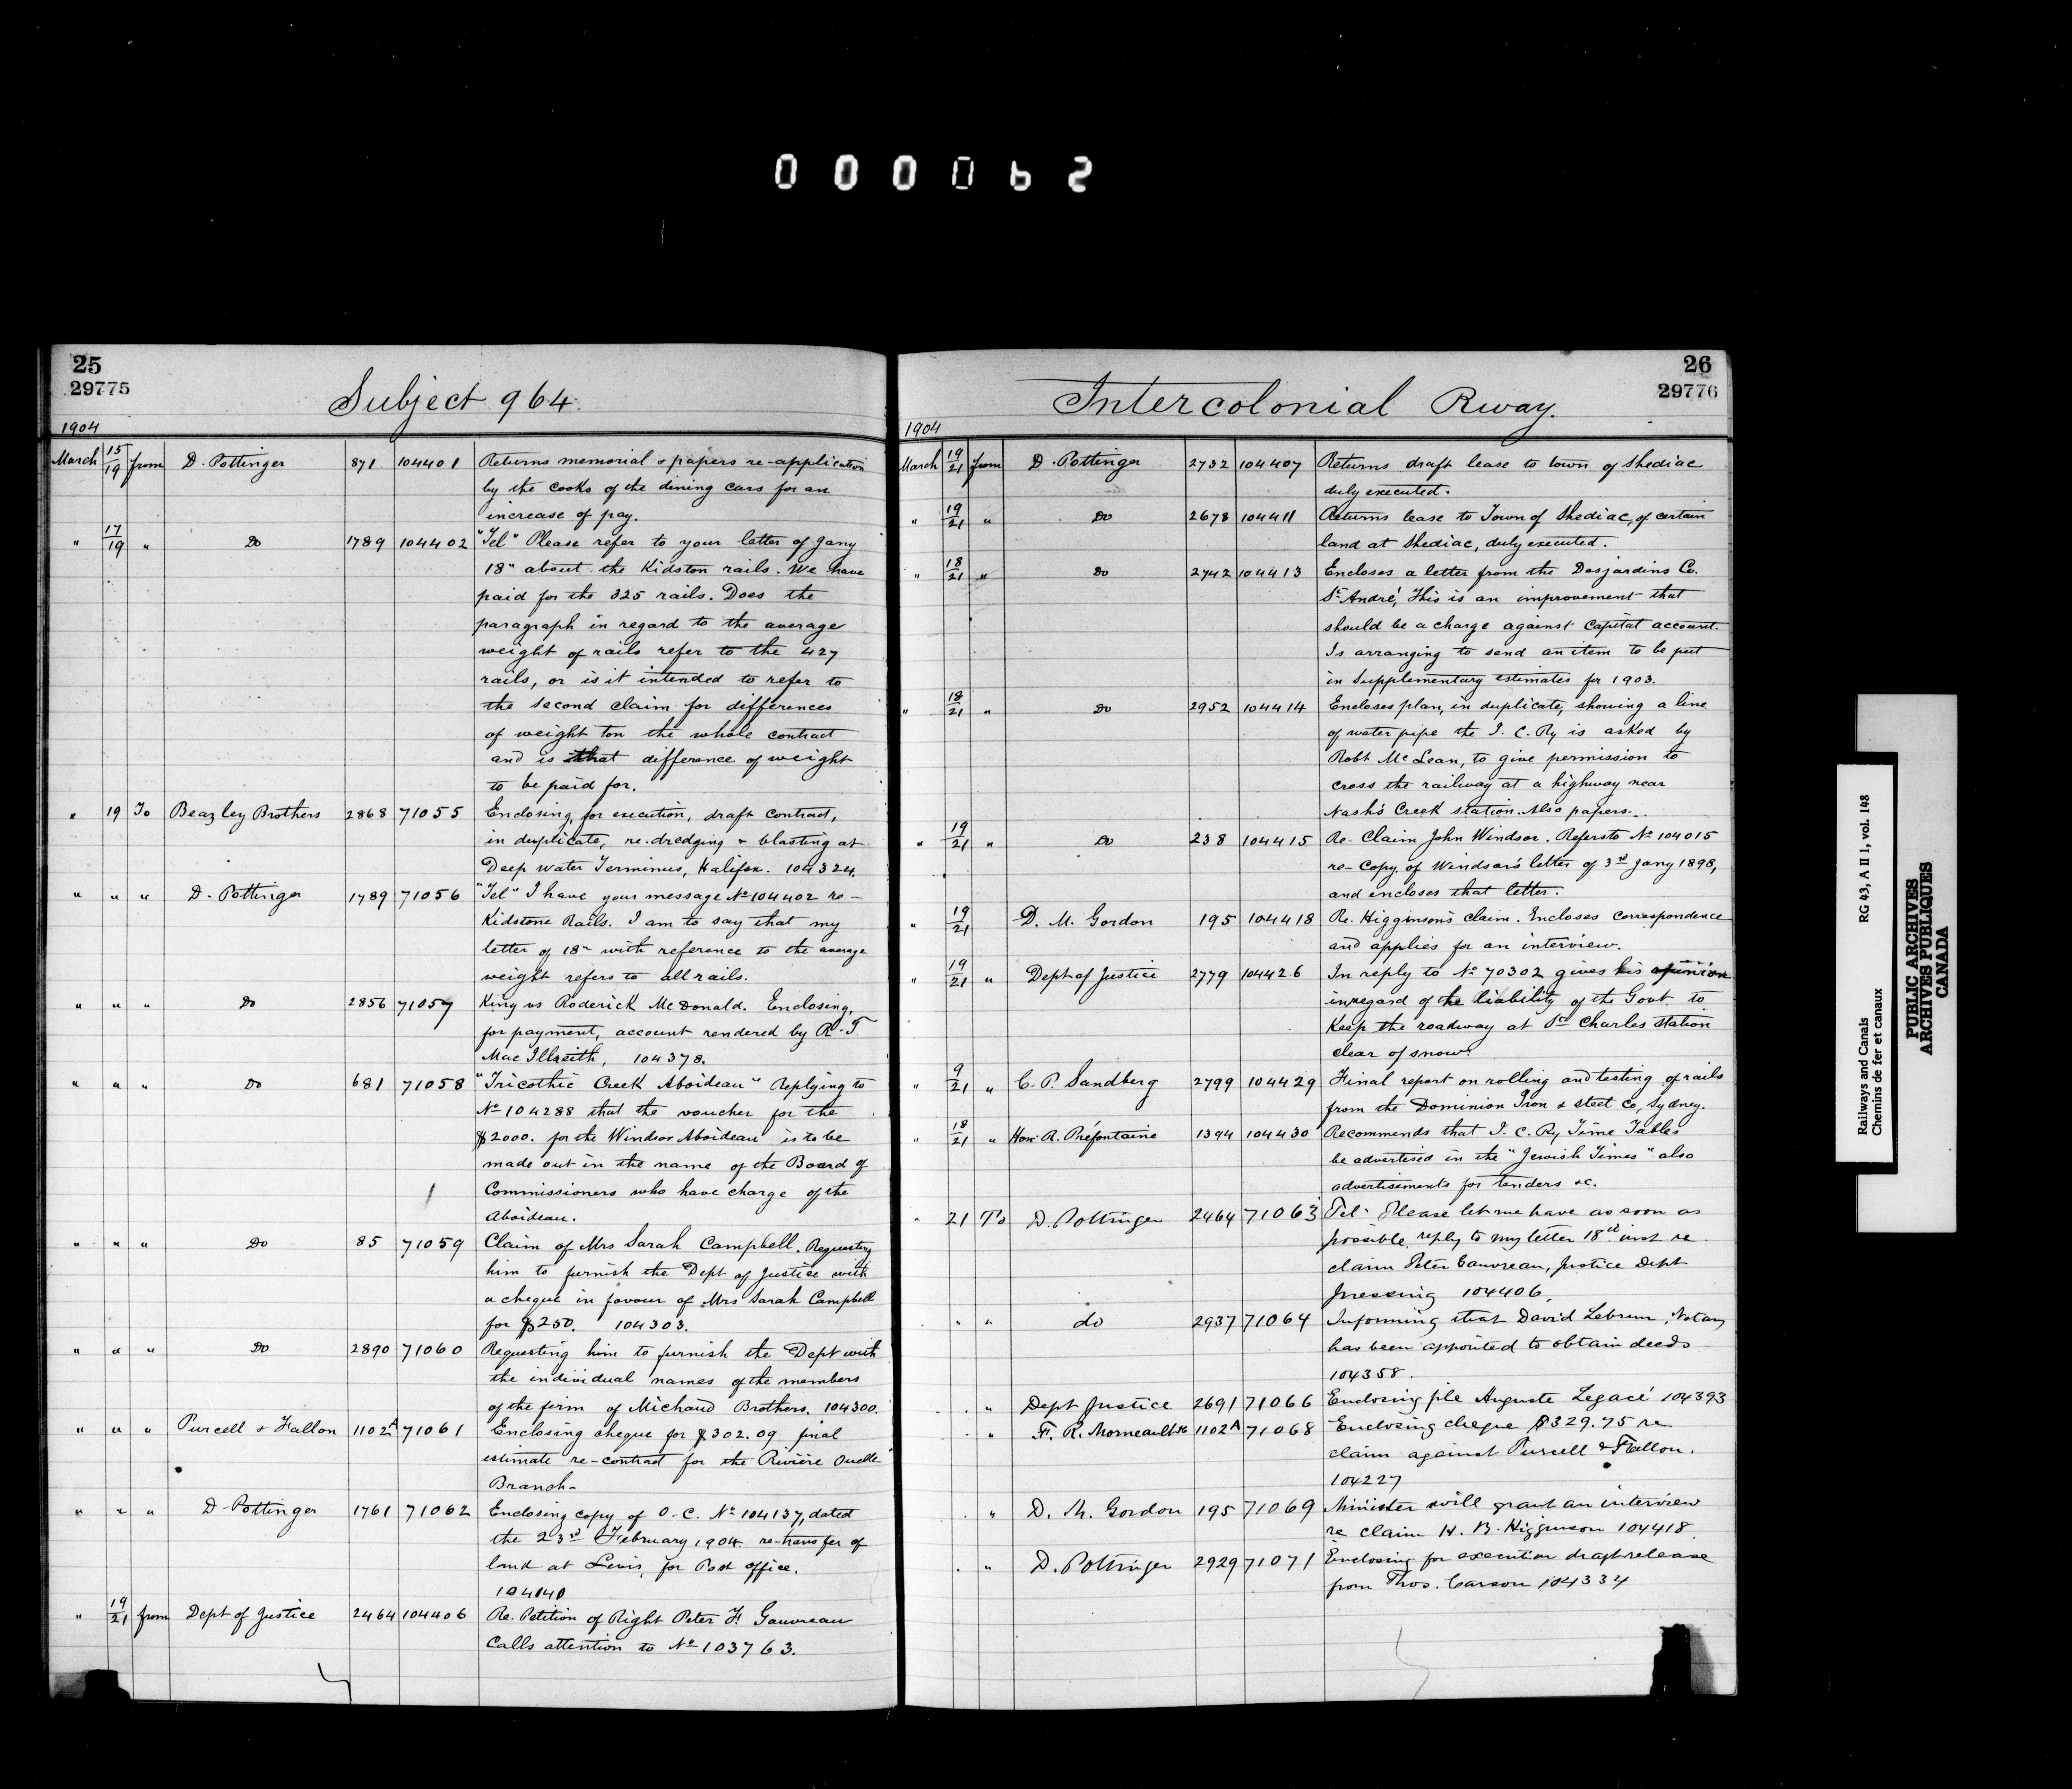 000062
25
29775
Subject 964
1904
March 15/19 from D. Pottinger 871 104401 Returns memorial & papers re-application
by the cooks of the dining cars for an
increase of pay.
" 17/19 " Do 1789 104402 "Tel" Please refer to your letter of Jany
18" about the Kidston rails. We have
paid for the 325 rails. Does the
paragraph in regard to the average
weight of rails refer to the 427
rails, or is it intended to refer to
the second claim for differences
of weight on the whole contract
and is that difference of weight
to be paid for.
" 19 To Beazley Brothers 2868 71055 Enclosing, for execution, draft contract,
in duplicate, re. dredging & blasting at
Deep water Terminus, Halifax. 104324.
" " " D. Pottinger 1789 71056 "Tel" I have your message No 104402 re-
Kidstone Rails. I am to say that my
letter of 18" with reference to the average
weight refers to all rails.
" " " Do 2856 71057 King vs Roderick McDonald. Enclosing,
for payment, account rendered by R. T.
Mac Illreith, 104378.
" " " Do 681 71058 "Tricothic Creek Aboideau" Replying to
No 104288 that the voucher for the
$2000. for the Windsor Aboideau is to be
made out in the name of the Board of
Commissioners who have charge of the
Aboideau.
" " " Do 85 71059 Claim of Mrs Sarah Campbell. Requesting
him to furnish the Dept of Justice with
a cheque in favour of Mrs Sarah Campbell
for $250. 104303.
" " " Do 2890 71060 Requesting him to furnish the Dept with
the individual names of the members
of the firm of Michaud Brothers. 104300.
" " " Purcell & Fallon 1102A 71061 Enclosing cheque for $302.09 final
estimate re-contract for the Rivière Ouelle
Branch-
" " " D. Pottinger 1761 71062 Enclosing copy of O. C. No 104137, dated
the 23rd February 1904 re-transfer of
land at Levis, for Post office.
104140
" 19/21 from Dept of Justice 2464 104406 Re. Petition of Right Peter F. Gauvreau
Calls attention to No 103763.
26
29776
Intercolonial Rway.
1904
March 19/21 from D. Pottinger 2732 104407 Returns draft lease to town of Shediac
duly executed.
" 19/21 " Do 2678 104411 Returns lease to Town of Shediac, of certain
land at Shediac, duly executed.
" 18/21 " Do 2742 104413 Encloses a letter from the Desjardins Co.
St André, This is an improvement that
should be a charge against Capital account.
Is arranging to send an item to be put
in Supplementary estimates for 1903.
" 18/21 " Do 2952 104414 Encloses plan, in duplicate, showing a line
of water pipe the I. C. Ry is asked by
Robt McLean, to give permission to
cross the railway at a highway near
Nash's Creek station. Also papers.
" 19/21 " Do 238 104415 Re- Claim John Windsor. Refers to No 104015
re- Copy of Windsor's letter of 3rd Jany 1898,
and encloses that letter.
" 19/21 D. M. Gordon 195 104418 Re. Higginson's claim. Encloses correspondence
and applies for an interview.
" 19/21 " Dept of Justice 2779 104426 In reply to No 70302 gives his opinion
in regard of the liability of the Govt to
Keep the roadway at St Charles station
clear of snow.
" 9/21 " C. P. Sandberg 2799 104429 Final report on rolling and testing of rails
from the Dominion Iron & Steel Co, Sydney.
" 18/21 " Hon R. Préfontaine 1394 104430 Recommends that I. C. Ry Time Tables
be advertised in the "Jewish Times" also
advertisements for tenders &c.
" 21 To D. Pottinger 2464 71063 Tel- Please let me have as soon as
possible reply to my letter 18th inst re
claim Peter Gauvreau, Justice Dept
pressing 104406.
" " do 2937 71064 Informing that David Lebrun, Notary
has been appointed to obtain deeds
104358.
" Dept Justice 2691 71066 Enclosing file Auguste Legacé 104393
" F. R. Morneault 1102A 71068 Enclosing cheque $329.75 re
claim against Purcell & Fallon.
104227
" D. M. Gordon 195 71069 Minister will grant an interview
re claim H. B. Higginson 104418
" D. Pottinger 2929 71071 Enclosing for execution draft release
from Thos. Carson 104334
Railways and Canals RG 43, A II 1, vol. 148
Chemins de fer et canaux
PUBLIC ARCHIVES
ARCHIVES PUBLIQUES
CANADA